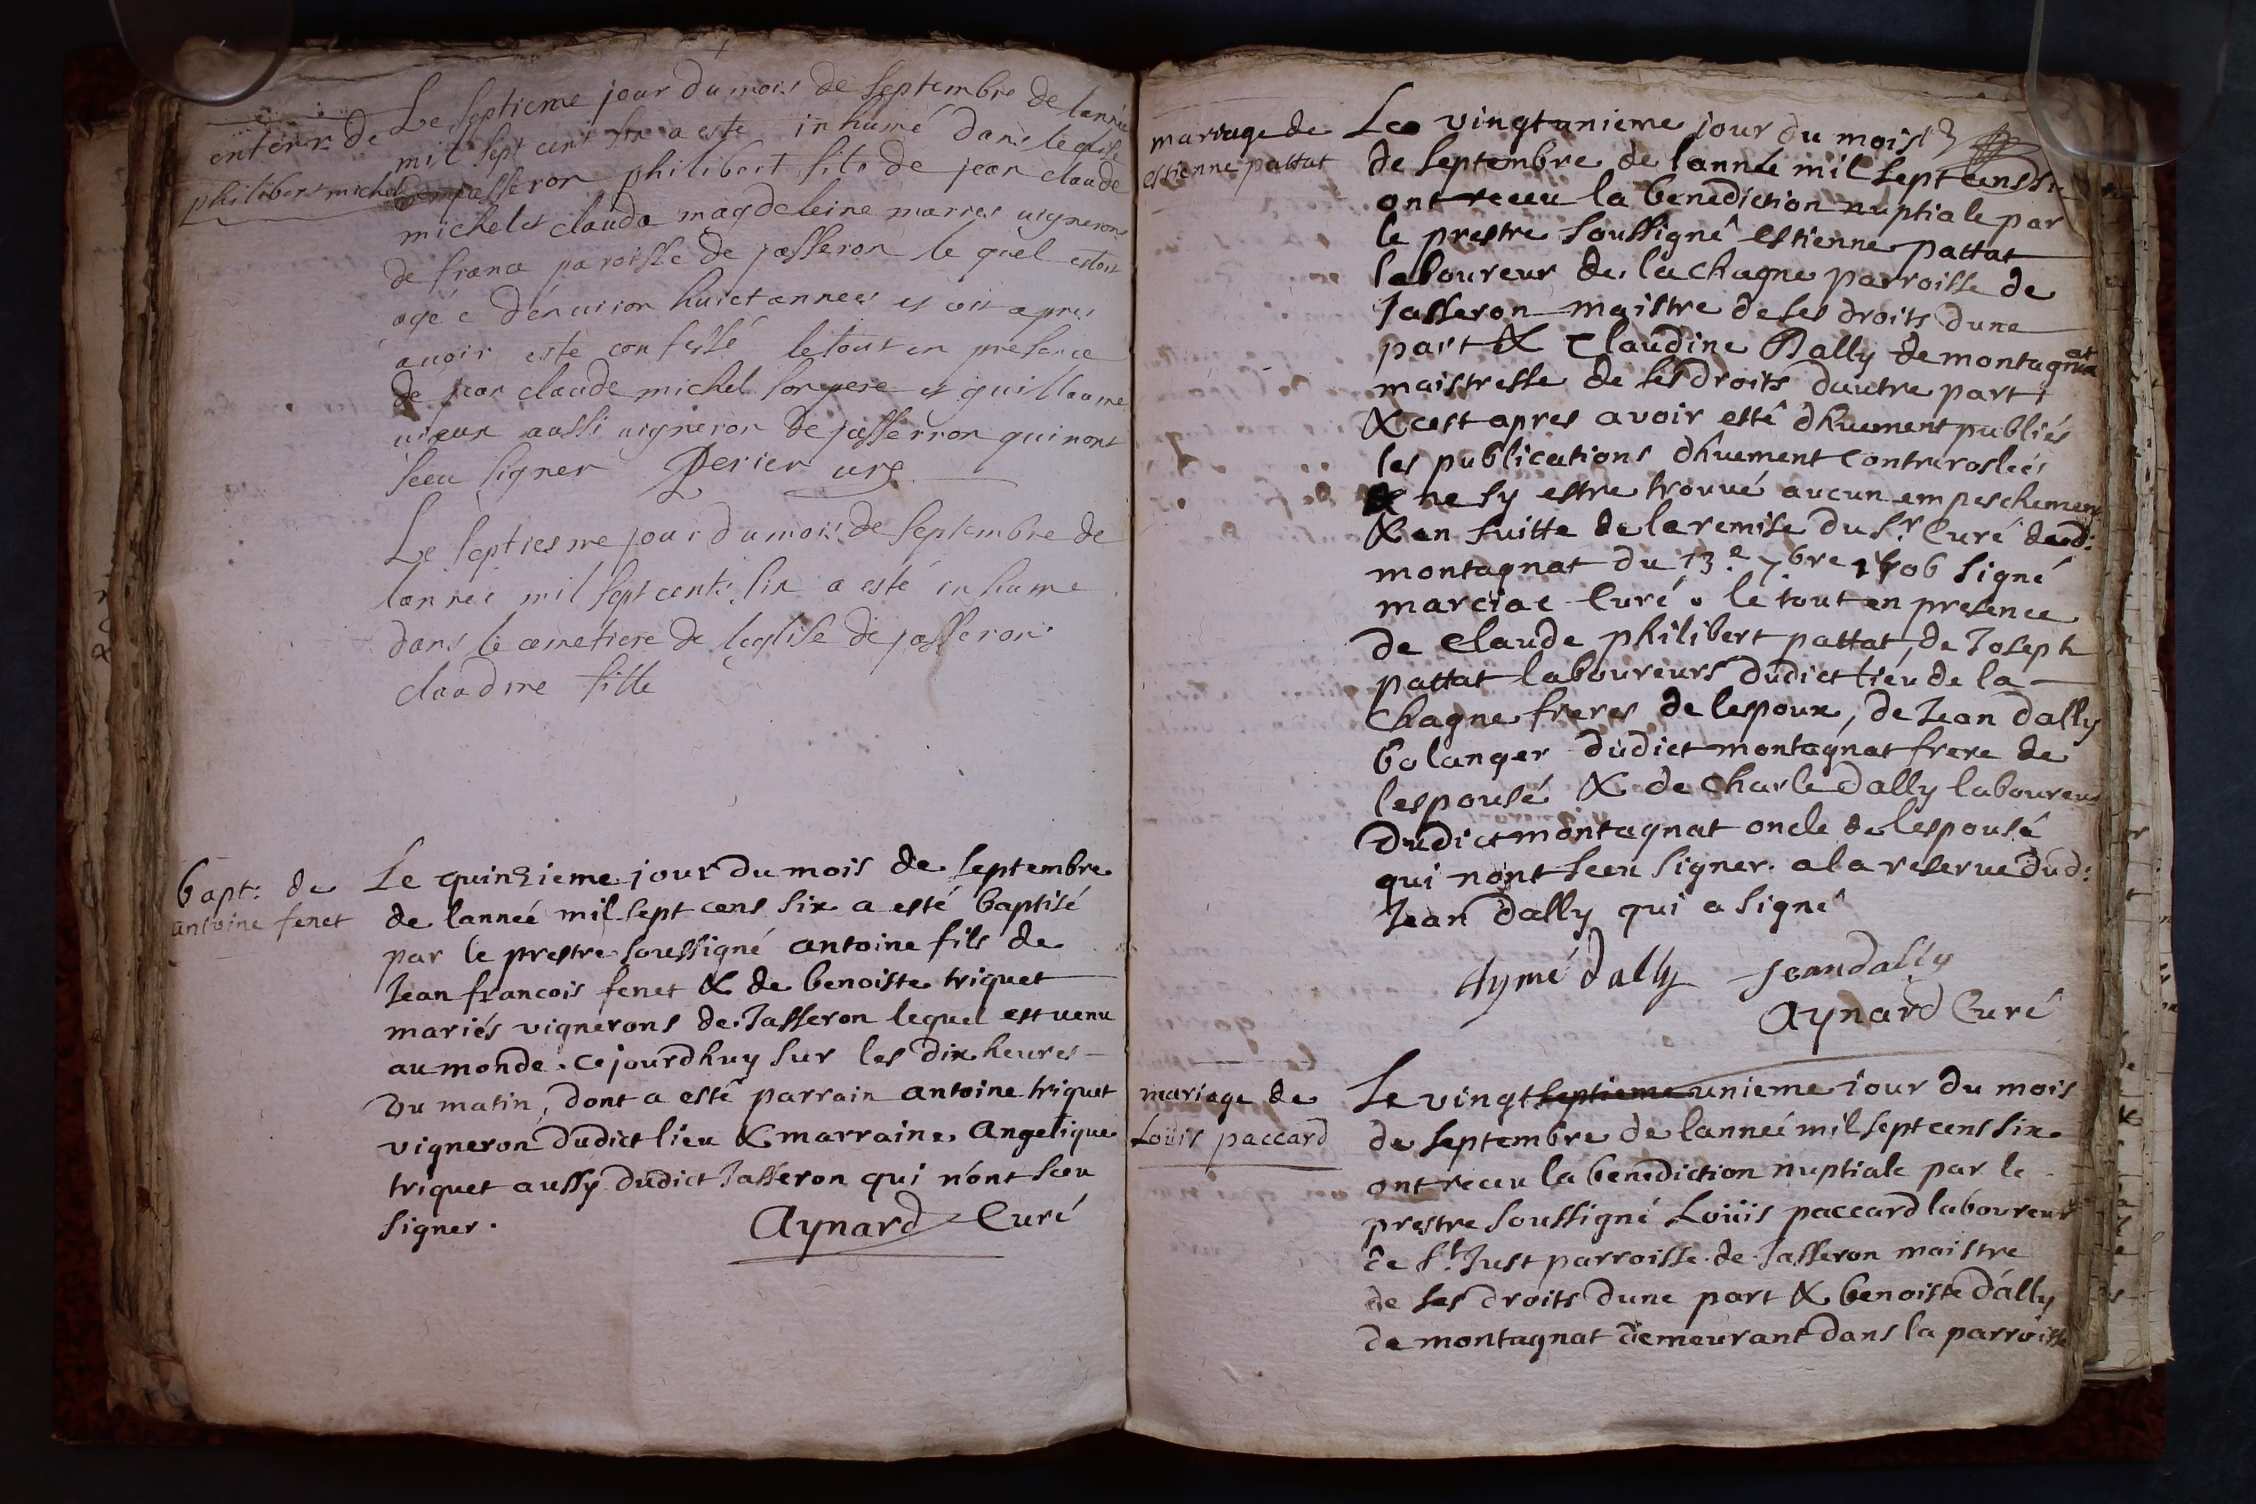 enterr: de
philibert michel
Le septieme jour du mois de septembre de lannée
mil sept cent six a este inhumé dans leglise
de jasseron philibert fils de jean claude
michel et clauda magdeleine maries vignerons
de france paroisse de jasseron le quel estoit
agé e denviron huict annees et cest apres
avoir este confessé le tout en presence
de jean claude michel son pere et guillaume
vieux aussi vigneron de jasserron qui nont
sceu signer Perier
Le septiesme jour du mois de septembre de
lannee mil sept cents six a esté inhume
dans le cemetiere de leglise de jasseron
claudine fille
bapt: de
antoine fenet
Le quinzieme jour du mois de septembre
de lanneé mil sept cens six a esté baptisé
par le prestre soussigné antoine fils de
Jean francois fenet & de benoiste triquet
mariés vignerons de Jasseron lequel est venu
au monde ce jourdhuy sur les dix heures
du matin, dont a esté parrain antoine triquet
vigneron dudict lieu & marraine Angelique
triquet aussy dudict Jasseron qui n'ont sceu
signer.
Aynard Curé
mariage de
estienne pattat
Le vingtunieme jour du mois
de septembre de lanneé mil sept cens six
ont receu la benediction nuptiale par
le prestre soussigné estienne pattat
laboureur de la chagne parroisse de
Jasseron maistre de ses droits dune
part & Claudine Dally de montagnat
maistresse de ses droits dautre part
& cest apres avoir esté dhuement publiés
les publications dhuement contrerosleés
& ne sy estre trouvé aucun empeschement
& en suitte de la remise du Sr. Curé dud:
montagnat du 13e 7bre 1706 signé
marciac Curé. le tout en presence
de Claude philibert pattat, de Joseph
pattat laboureurs dudict lieu de la
Chagne freres de lespoux, de Jean dally
bolanger dudict montagnat frere de
lespousé & de Charle Dally laboureur
dudict montagnat oncle de lespousé
qui nont sceu signer. a la reserve dud:
Jean dally qui a signé
Aymé dally Jean dally
Aynard Curé
mariage de
Loüis paccard
Le vingt septieme unieme jour du mois
de septembre de lanneé mil sept cens six
ont receu la benediction nuptiale par le
prestre soussigné Loüis paccard laboureur
de St. Just parroisse de Jasseron maistre
de ses droits dune part & benoiste dally
de montagnat demeurant dans la parroisse